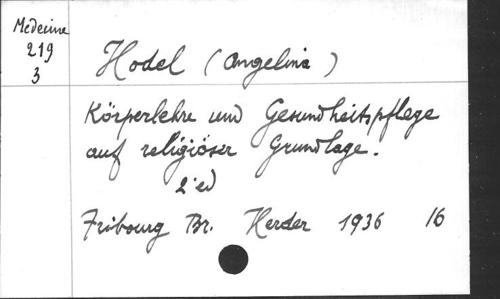 Medecine
219
3
Hodel (Angelina)
Körperlehre und Gesundheitspflege
auf religiöser Grundlage.
2 ed
Fribourg Br. Herder 1936 16